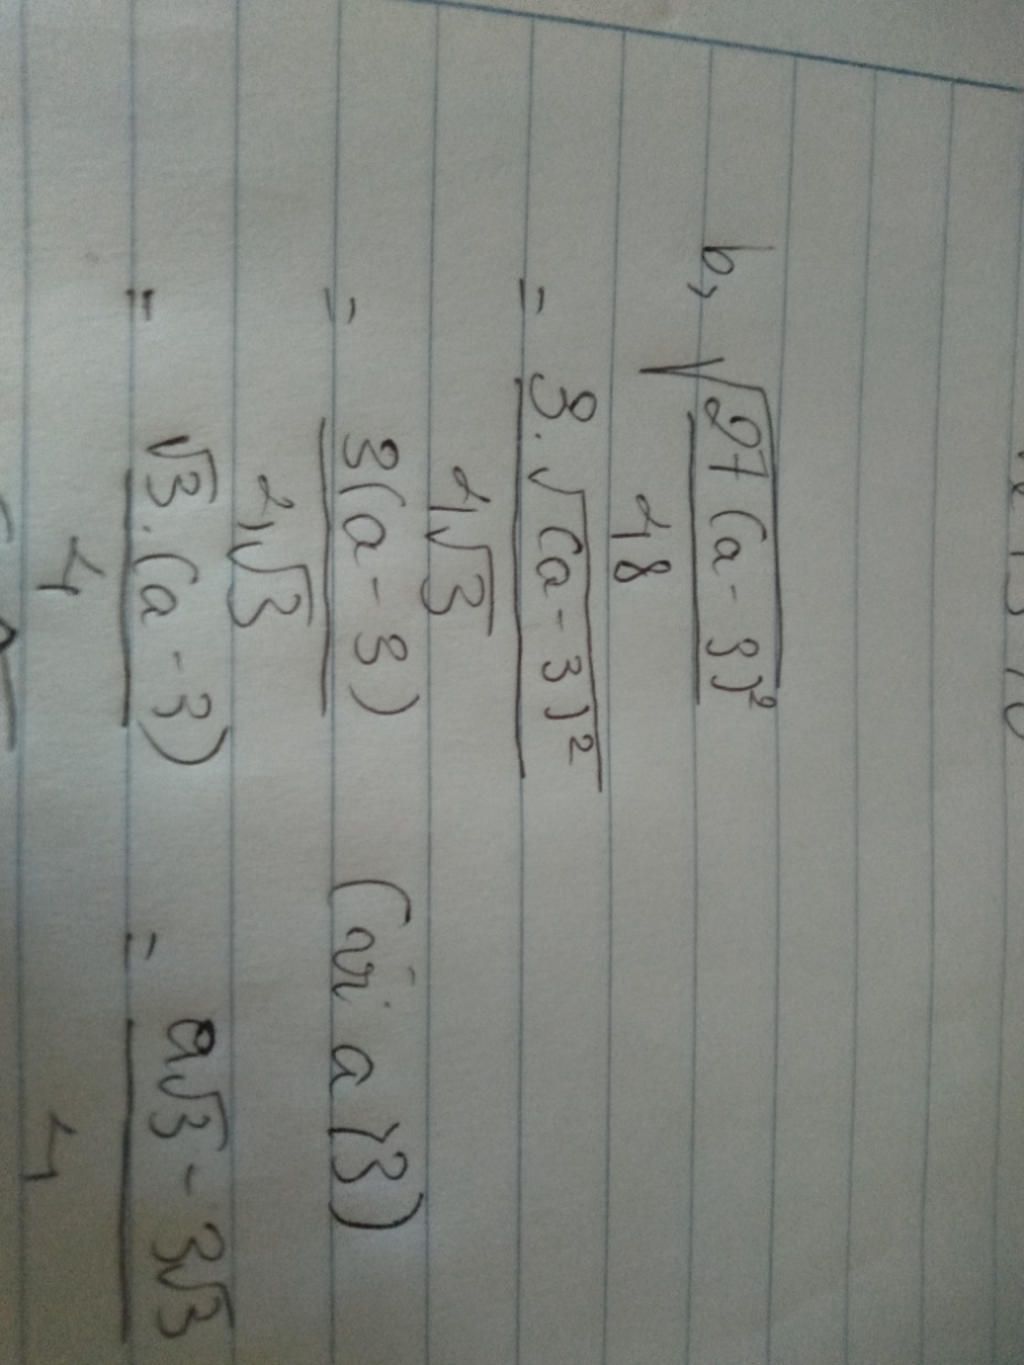 b, √27(a-3)²
48
= 3.√(a-3)²
4√3
= 3(a-3) (vì a > 3)
4√3
= √3.(a-3) = a√3 - 3√3
4 4